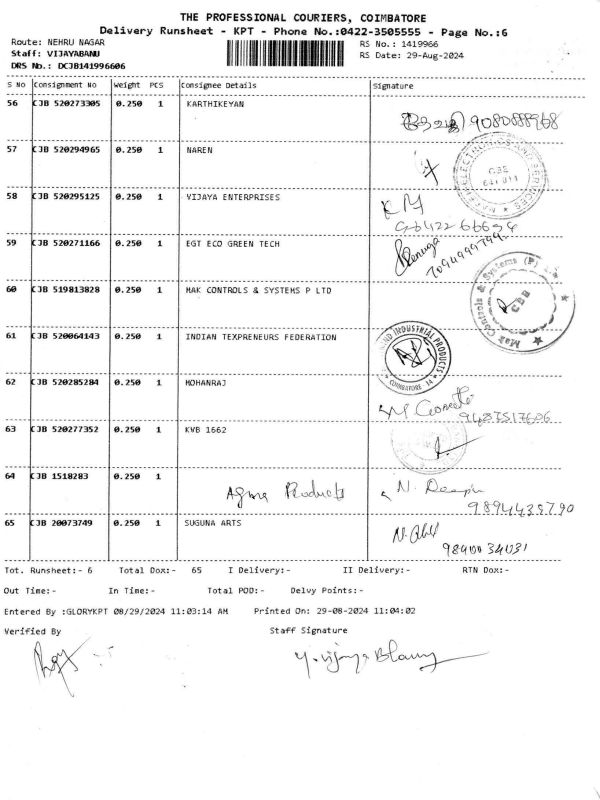 THE PROFESSIONAL COURIERS, COIMBATORE
Delivery Runsheet - KPT - Phone No.:0422-3505555 - Page No.:6
Route: NEHRU NAGAR RS No.: 1419966
Staff: VIJAYABANU RS Date: 29-Aug-2024
DRS No.: DCJB141996606
S No Consignment No Weight PCS Consignee Details Signature
56 CJB 520273305 0.250 1 KARTHIKEYAN
57 CJB 520294965 0.250 1 NAREN
58 CJB 520295125 0.250 1 VIJAYA ENTERPRISES
59 CJB 520271166 0.250 1 EGT ECO GREEN TECH
Renuga
7094999799
60 CJB 519813828 0.250 1 MAK CONTROLS & SYSTEMS P LTD
Mak Controls & Systems (P) CBE
61 CJB 520064143 0.250 1 INDIAN TEXPRENEURS FEDERATION
INDUSTRIAL PRODUCTS
COIMBATORE - 14
62 CJB 520285284 0.250 1 MOHANRAJ
9487517606
63 CJB 520277352 0.250 1 KWB 1662
64 CJB 1518283 0.250 1
Agma Products N. Deepa
9894435790
65 CJB 20073749 0.250 1 SUGUNA ARTS
Tot. Runsheet:- 6 Total Dox:- 65 I Delivery:- II Delivery:- RTN Dox:-
Out Time:- In Time:- Total POD:- Delvy Points:-
Entered By :GLORYKPT 08/29/2024 11:03:14 AM Printed On: 29-08-2024 11:04:02
Verified By Staff Signature